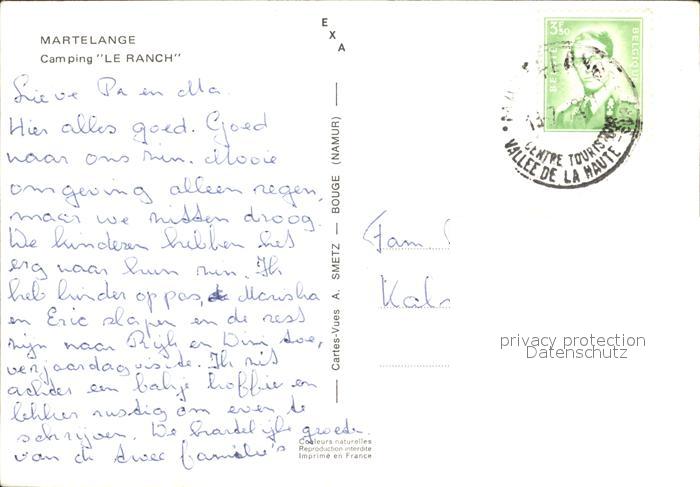 MARTELANGE
Camping "LE RANCH"
EXA
Lieve Pa en Ma.
Hier alles goed. Goed
naar ons zin. Mooie
omgeving alleen regen,
maar we zitten droog.
De kinderen hebben het
erg naar hun zin. Ik
heb kinder oppas, Marisha
en Eric slapen en de rest
zijn naar en
verjaardag visite. Ik zit
achter een bakje koffie en
lekker rustig om even te
schrijven. De hartelijke groeten.
van de twee familie's
Cartes-Vues A. SMETZ — BOUGE (NAMUR)
Couleurs naturelles
Reproduction interdite
Imprimé en France
3F50
BELGIE
BELGIQUE
CENTRE TOURISTIQUE
VALLEE DE LA HAUTE
Fam.
privacy protection
Datenschutz